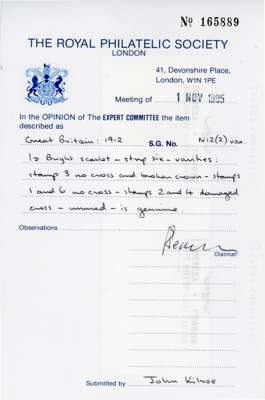 No 165889
THE ROYAL PHILATELIC SOCIETY
LONDON
41, Devonshire Place,
London, W1N 1PE
Meeting of 1 NOV 1995
In the OPINION of The EXPERT COMMITTEE the item
described as
Great Britain: 1912 S.G. No. N12(2) var.
1d Bright scarlet - strip six - varieties:
stamp 3 no cross and broken crown - stamps
1 and 6 no cross - stamps 2 and 4 damaged
cross - unused - is genuine.
Observations
Chairman
Submitted by John Kilroe